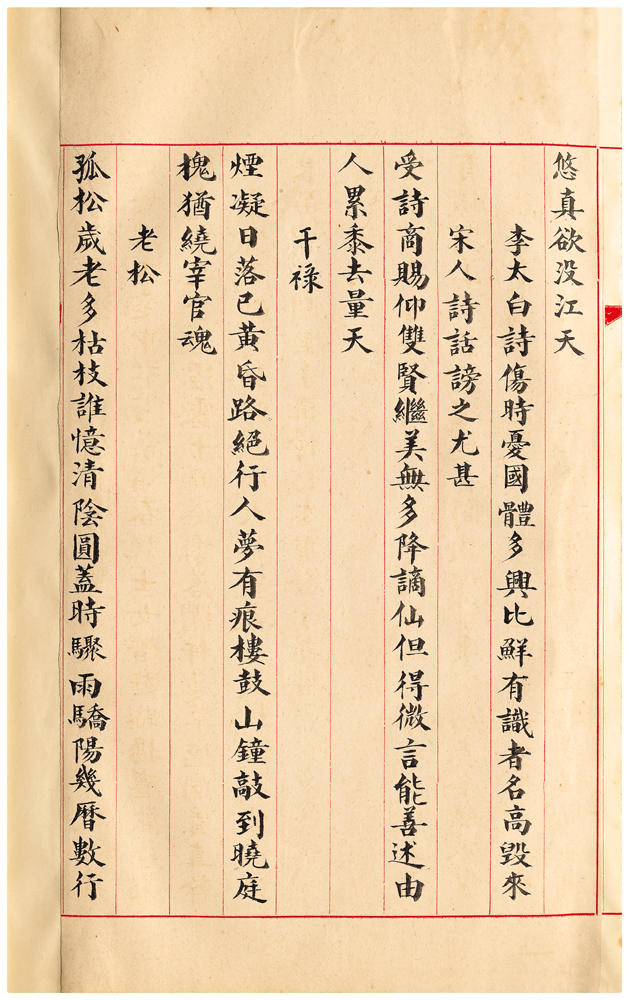 悠真欲没江天
李太白詩傷時憂國體多興比鮮有識者名高毀來
宋人詩話謗之尤甚
受詩商賜仰雙賢繼美無多降謫仙但得微言能善述由
人累黍去量天
干祿
煙凝日落已黃昏路絕行人夢有痕樓鼓山鐘敲到曉庭
槐猶繞宰官魂
老松
孤松歲老多枯枝誰憶清陰圓蓋時驟雨驕陽幾曆數行